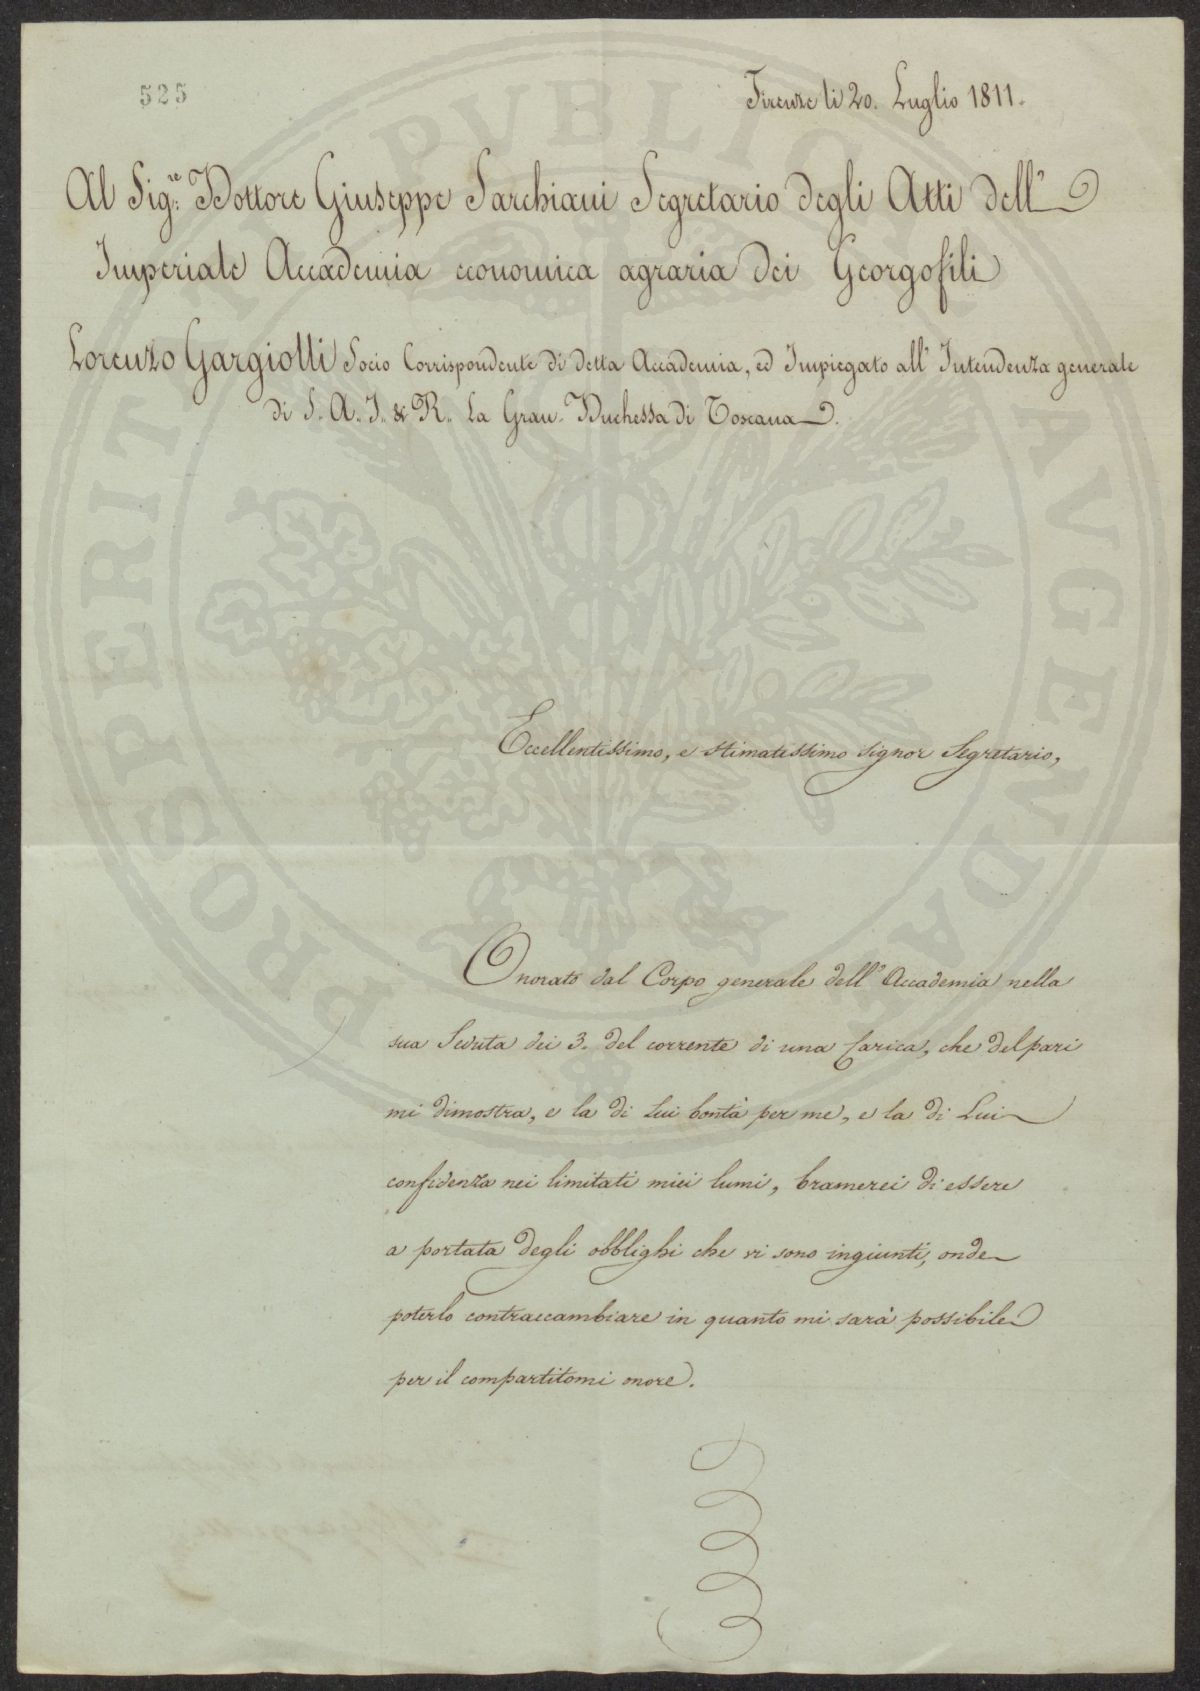 525
Firenze li 20. Luglio 1811.
Al Sig.re Dottore Giuseppe Sarchiani Segretario degli Atti dell'
Imperiale Accademia economica agraria dei Georgofili
Lorenzo Gargiolli Socio Corrispondente di detta Accademia, ed Impiegato all' Intendenza generale
di S. A. I. & R. La Gran-Duchessa di Toscana.
Eccellentissimo, e stimatessimo signor Segretario,
Onorato dal Corpo generale dell'Accademia nella
sua Seduta dei 3. del corrente di una Carica, che del pari
mi dimostra, e la di Lui bontà per me, e la di Lui
confidenza nei limitati miei lumi, bramerei di essere
a portata degli obblighi che vi sono ingiunti, onde
poterlo contraccambiare in quanto mi sarà possibile
per il compartitomi onore.
PROSPERITATI PVBLICAE AVGENDAE